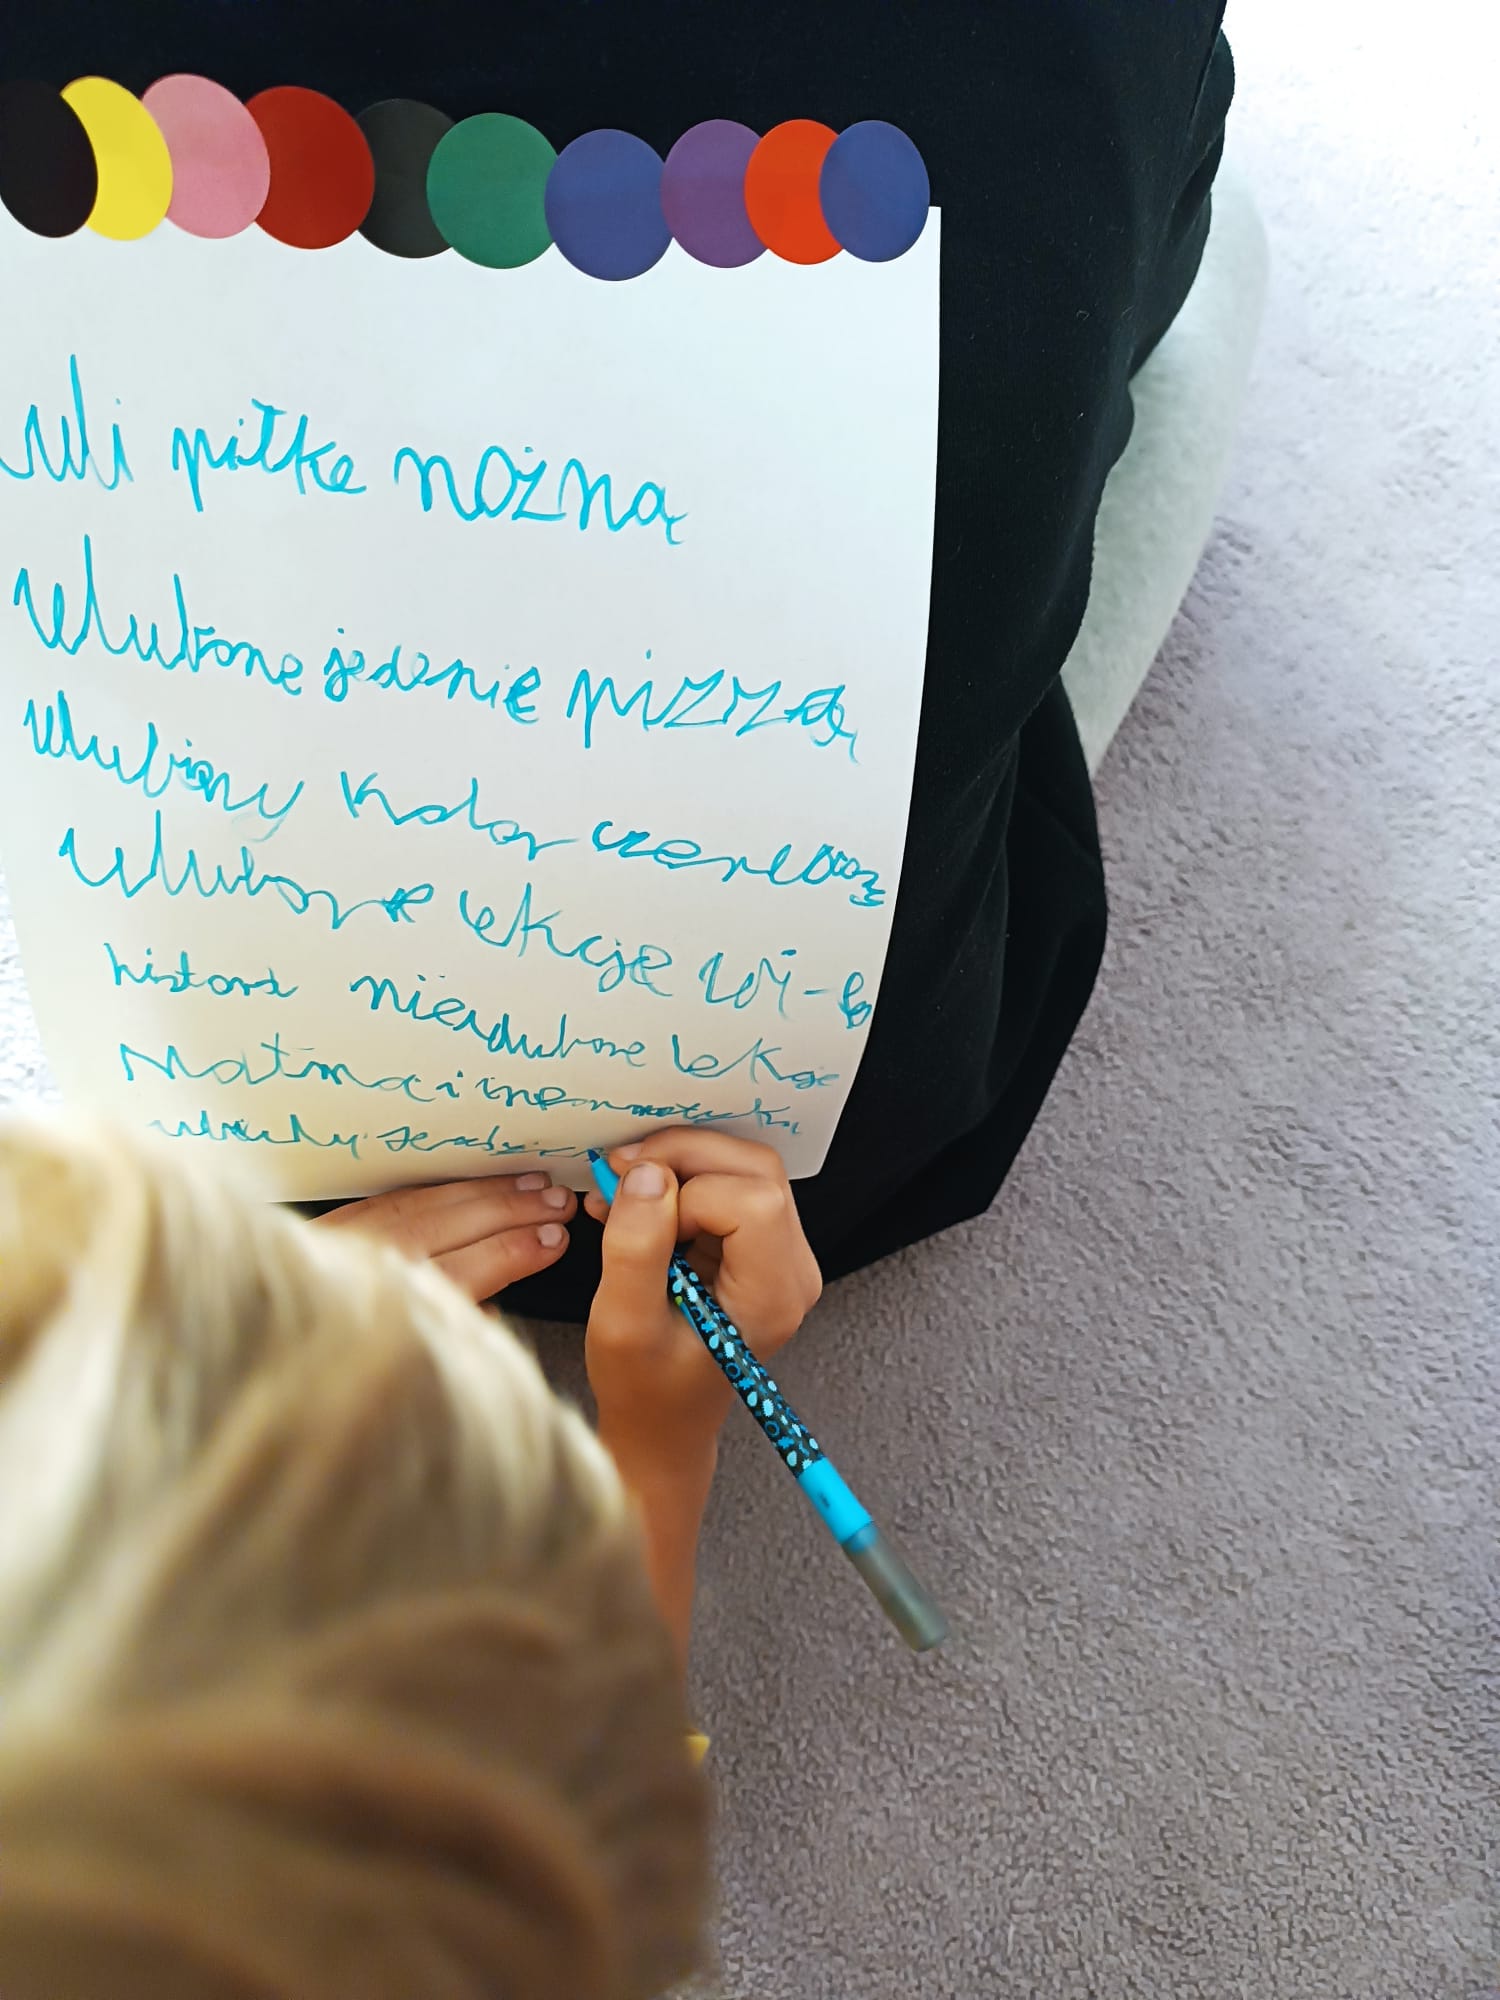 luli piłke nożną
ulubione jedenie pizzzą
ulubiony kolor czerwony
ulubione lekcje wf-e
histora nieulubone lekcje
matma i informatyka